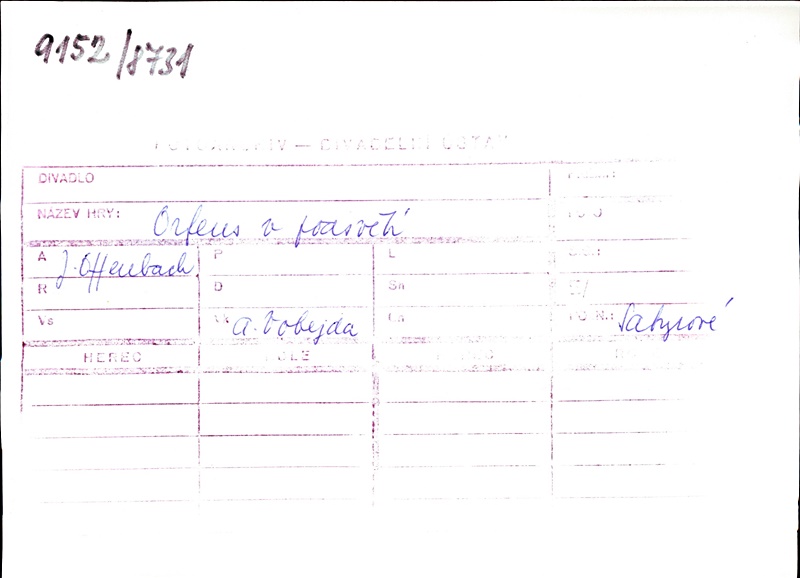 9152/8731
FOTOARCHIV — DIVADELNÍ ÚSTAV
DIVADLO
NÁZEV HRY: Orfeus v podsvětí
A J. Offenbach P L
R D Sn
Vs A. Vobejda POZN.: Satyrové
HEREC ROLE